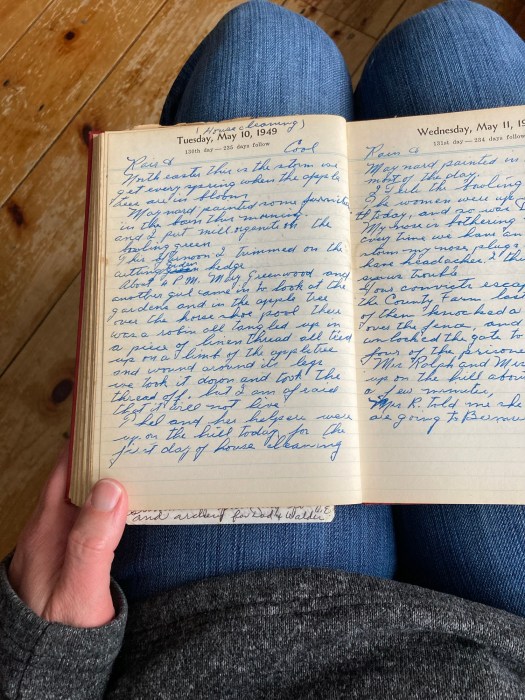 (Housecleaning)
Tuesday, May 10, 1949
130th day—235 days follow
Rain & Cool
North easter this is the storm we
get every spring when the apple
trees are in bloom,
Maynard painted some furniture
in the barn this morning.
and I put millorganite on the
bowling green
This afternoon I trimmed on the
cutting garden hedge
About 4 P.M. May Greenwood and
another girl came in to look at the
gardens and in the apple tree
over the horse shoe pool there
was a robin all tangled up in
a piece of linen thread all tied
up on a limb of the apple tree
and wound around its legs
we took it down and took the
thread off. but I am afraid
that it will not live
Ethel and her helpers were
up on the hill today for the
first day of house cleaning
and for Dad & Walder
Wednesday, May 11, 19
131st day—234 days follow
Rain &
Maynard painted in
most of the day.
I fed the bowling
The women were up
today, and
My nose is bothering
every time we have an
storm my nose plugs
have headaches & the
sinus trouble.
convicts escap
the County Farm last
of them knocked a
over the fence, and
unlocked the gate to
four of the prisone
Mrs Rolph and Mrs
up on the hill abou
a few minutes,
Mrs R. told me she
are going to Bermu